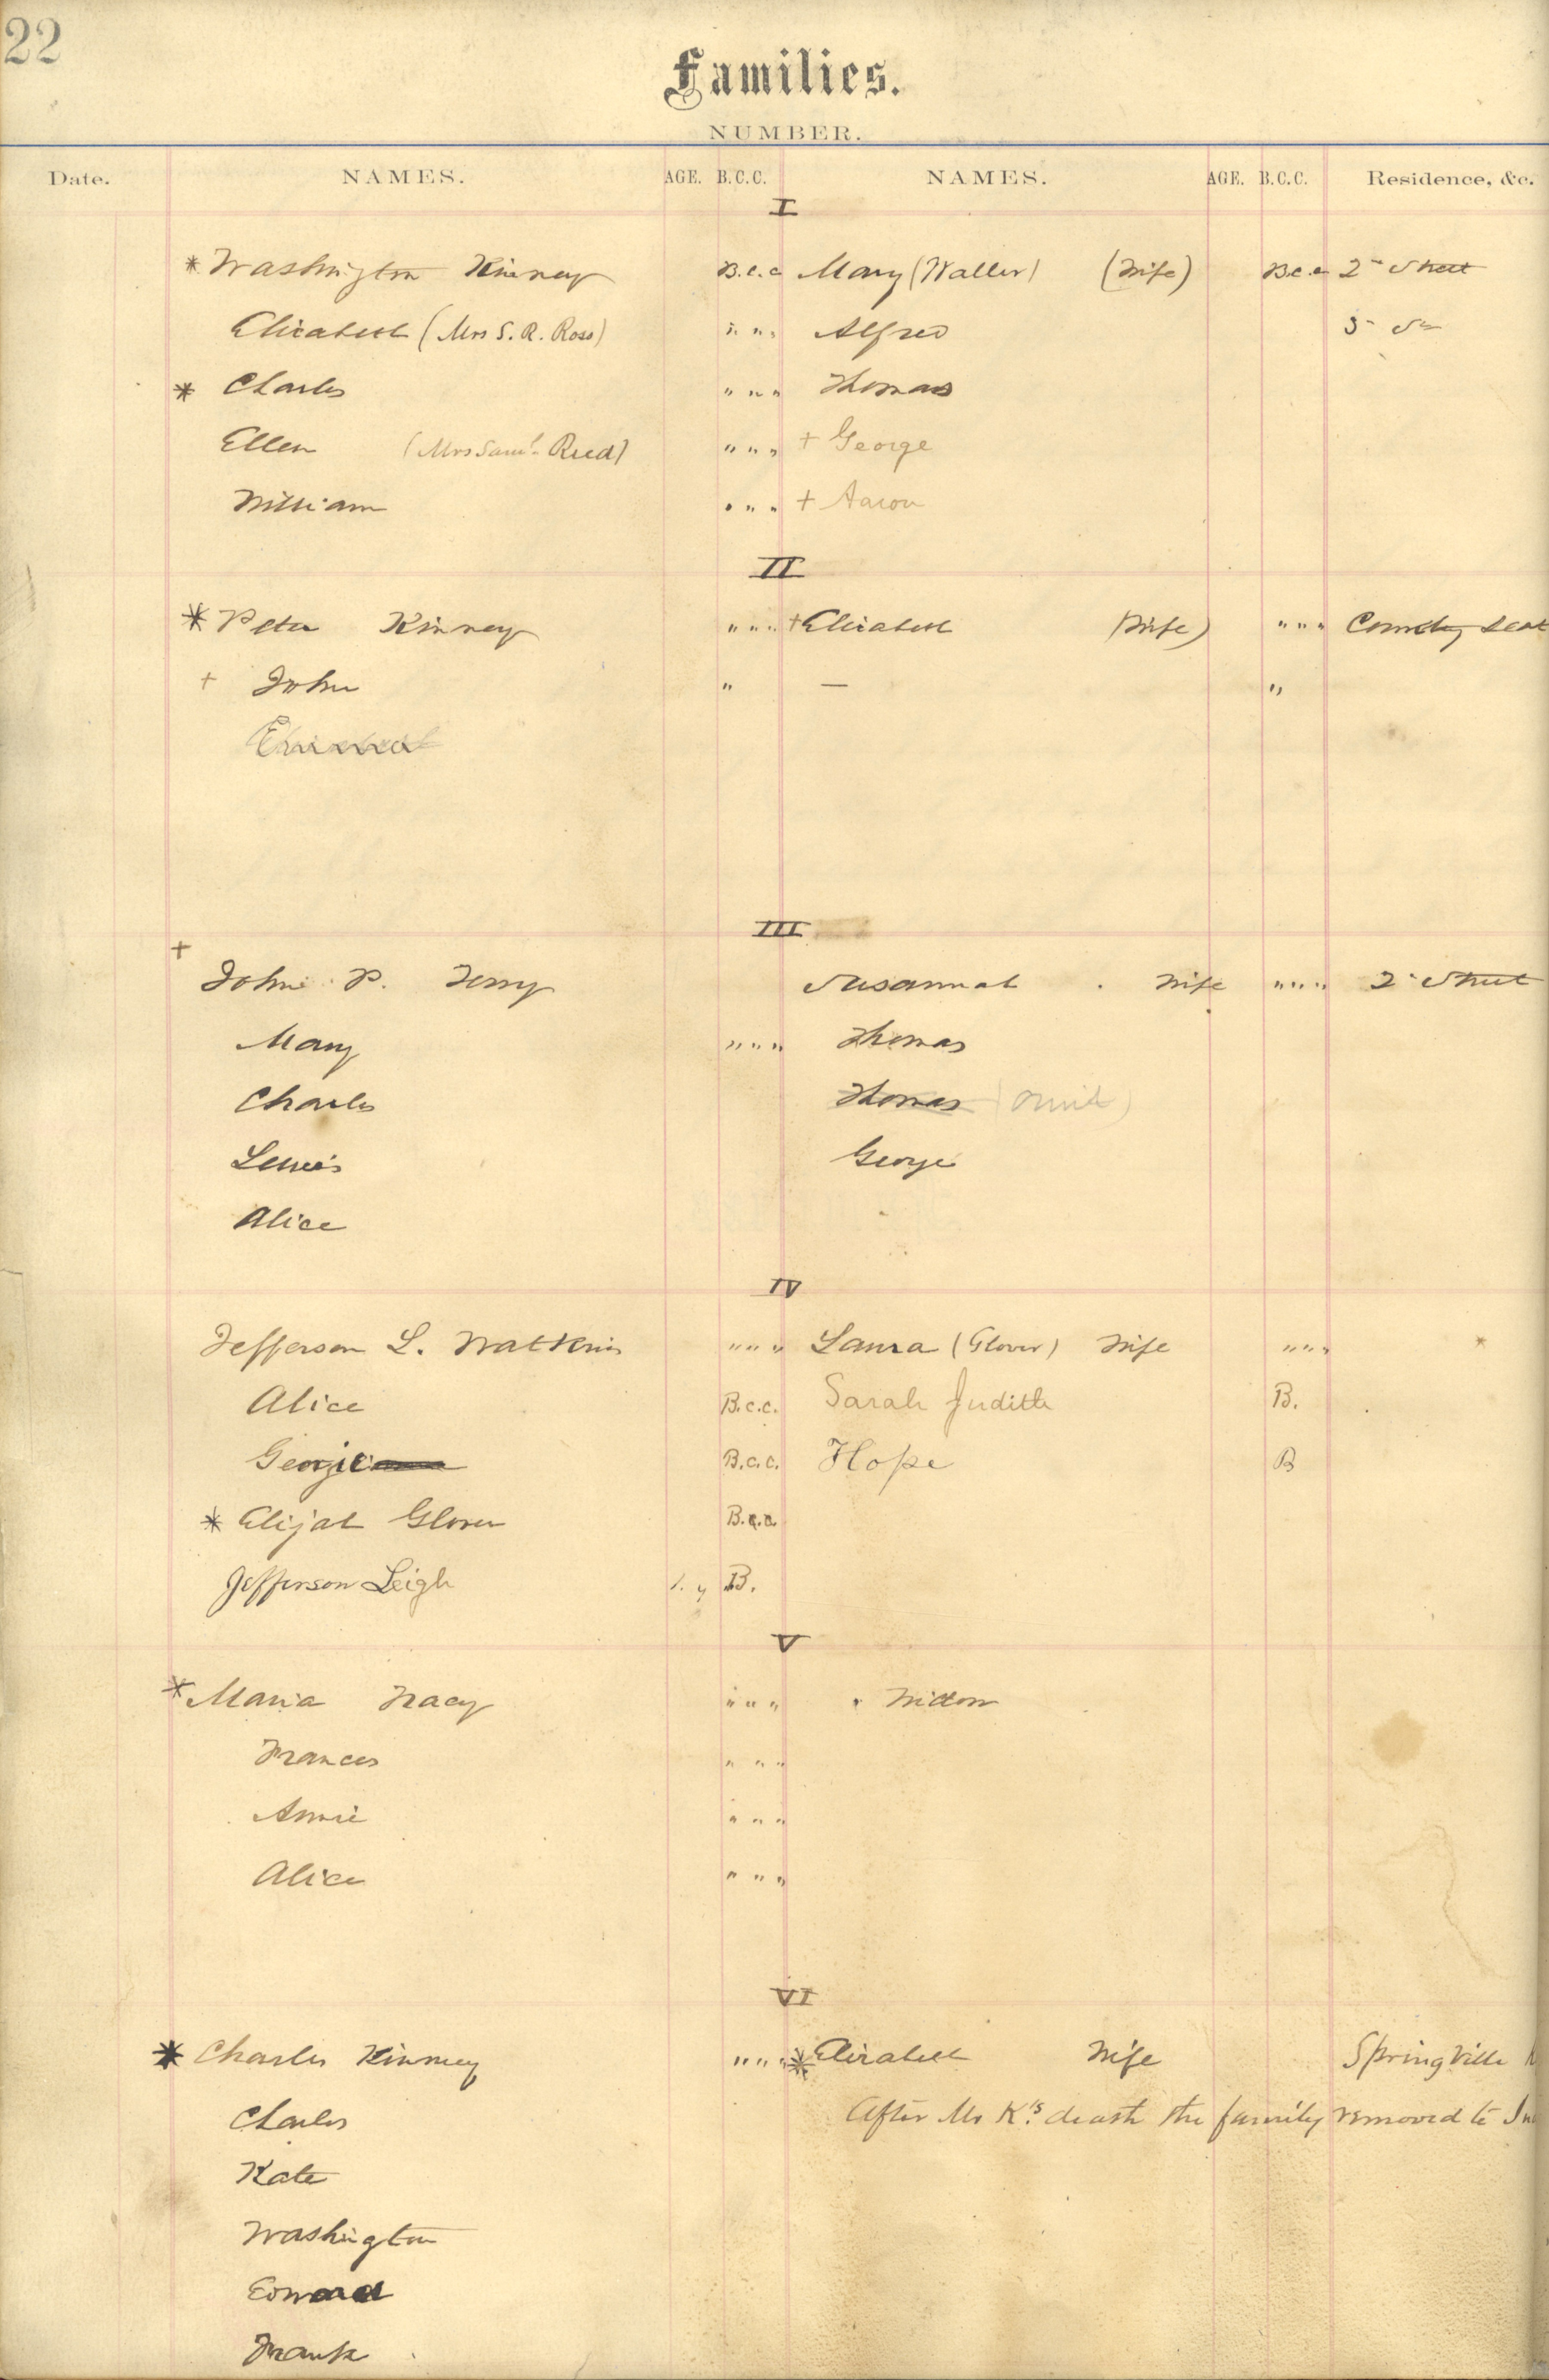 22
Families.
NUMBER.
Date. NAMES. AGE. B.C.C. NAMES. AGE. B.C.C. Residence, &c.
I
* Washington Kinney B.c.c Mary (Waller) (Wife) B.c.c 2nd Street
Elizabeth (Mrs S. R. Ross) " " " Alfred
* Charles " " " Thomas
Ellen (Mrs Saml. Reed) " " " + George
William " " " + Aaron
II
* Peter Kinney " " " + Elizabeth (Wife) " " " Country Seat
+ John " — "
III
+
John P. Terry Susannah Wife " " " " 2d Street
Mary " " " " Thomas
Charles Thomas
Lewis George
Alice
IV
Jefferson L. Watkins " " " Laura (Glover) Wife " " " *
Alice B.c.c. Sarah Judith B.
Georgie B.c.c. Hope B
* Elijah Glover B.c.c.
Jefferson Leigh 1. y B.
V
* Maria Tracy " " " Widow
Frances " " "
Annie " " "
Alice " " "
VI
* Charles Kinney " " " * Elizabeth Wife Springville
Charles After Mr K's. death the family removed to
Kate
Washington
Edward
Frank